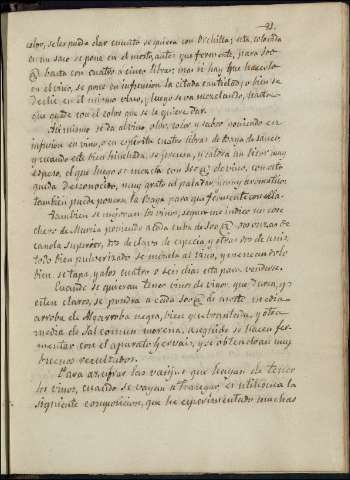 21.
color, se les puede dar cuanto se quiera con Orchilla; esta, colocada
en un saco se pone en el mosto, antes que fermente, para 100
@ basta con cuatro a cinco libras; mas si hay que hacerlo
en el vino, se pone en infusion la citada cantidad; o bien se
deslie en el mismo vino, y luego se va mezclando, hasta
que quede con el color que se le quiere dar.
Asimismo se da al vino olor, color y sabor poniendo en
infusion en vino, o en espiritu cuatro libras de baya de sauco,
y cuando este bien hinchada, se prensa, y saldra un licor muy
espeso, el que luego se mezcla con 100 @ de vino, con esto
queda desconocido, muy grato al paladar, y muy aromatico:
tambien puede ponerse la baya para que fermente con ella.
Tambien se mejoran los vinos, segun me indico un cose
chero de Murcia poniendo a cada cuba de 100 @. onzas de
canela superior, de clavo de especia, y otras de anis,
todo bien pulverizado se mezcla al vino, y meneandolo
bien, se tapa, y a los cuatro o seis dias esta para venderse.
Cuando se quieran tener vinos de vinos, que duren, y
esten claros, se pondra a cada 100 @ de mosto media
arroba de Algarroba negra, bien quebrantada, y otra
media de Sal comun morena, en seguida se hacen fer-
mentar con el aparato Gervais, y se obtendran muy
buenos resultados.
Para azufrar las vasijas que hayan de tener
los vinos, cuando se vayan a trasegar, es utilisima la
siguiente composicion, que he esperimentado muchas